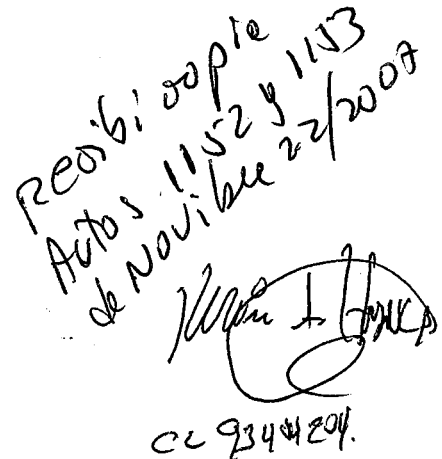 Recibi copia
Autos 1152 y 1153
de Novibre 22/2007
cc